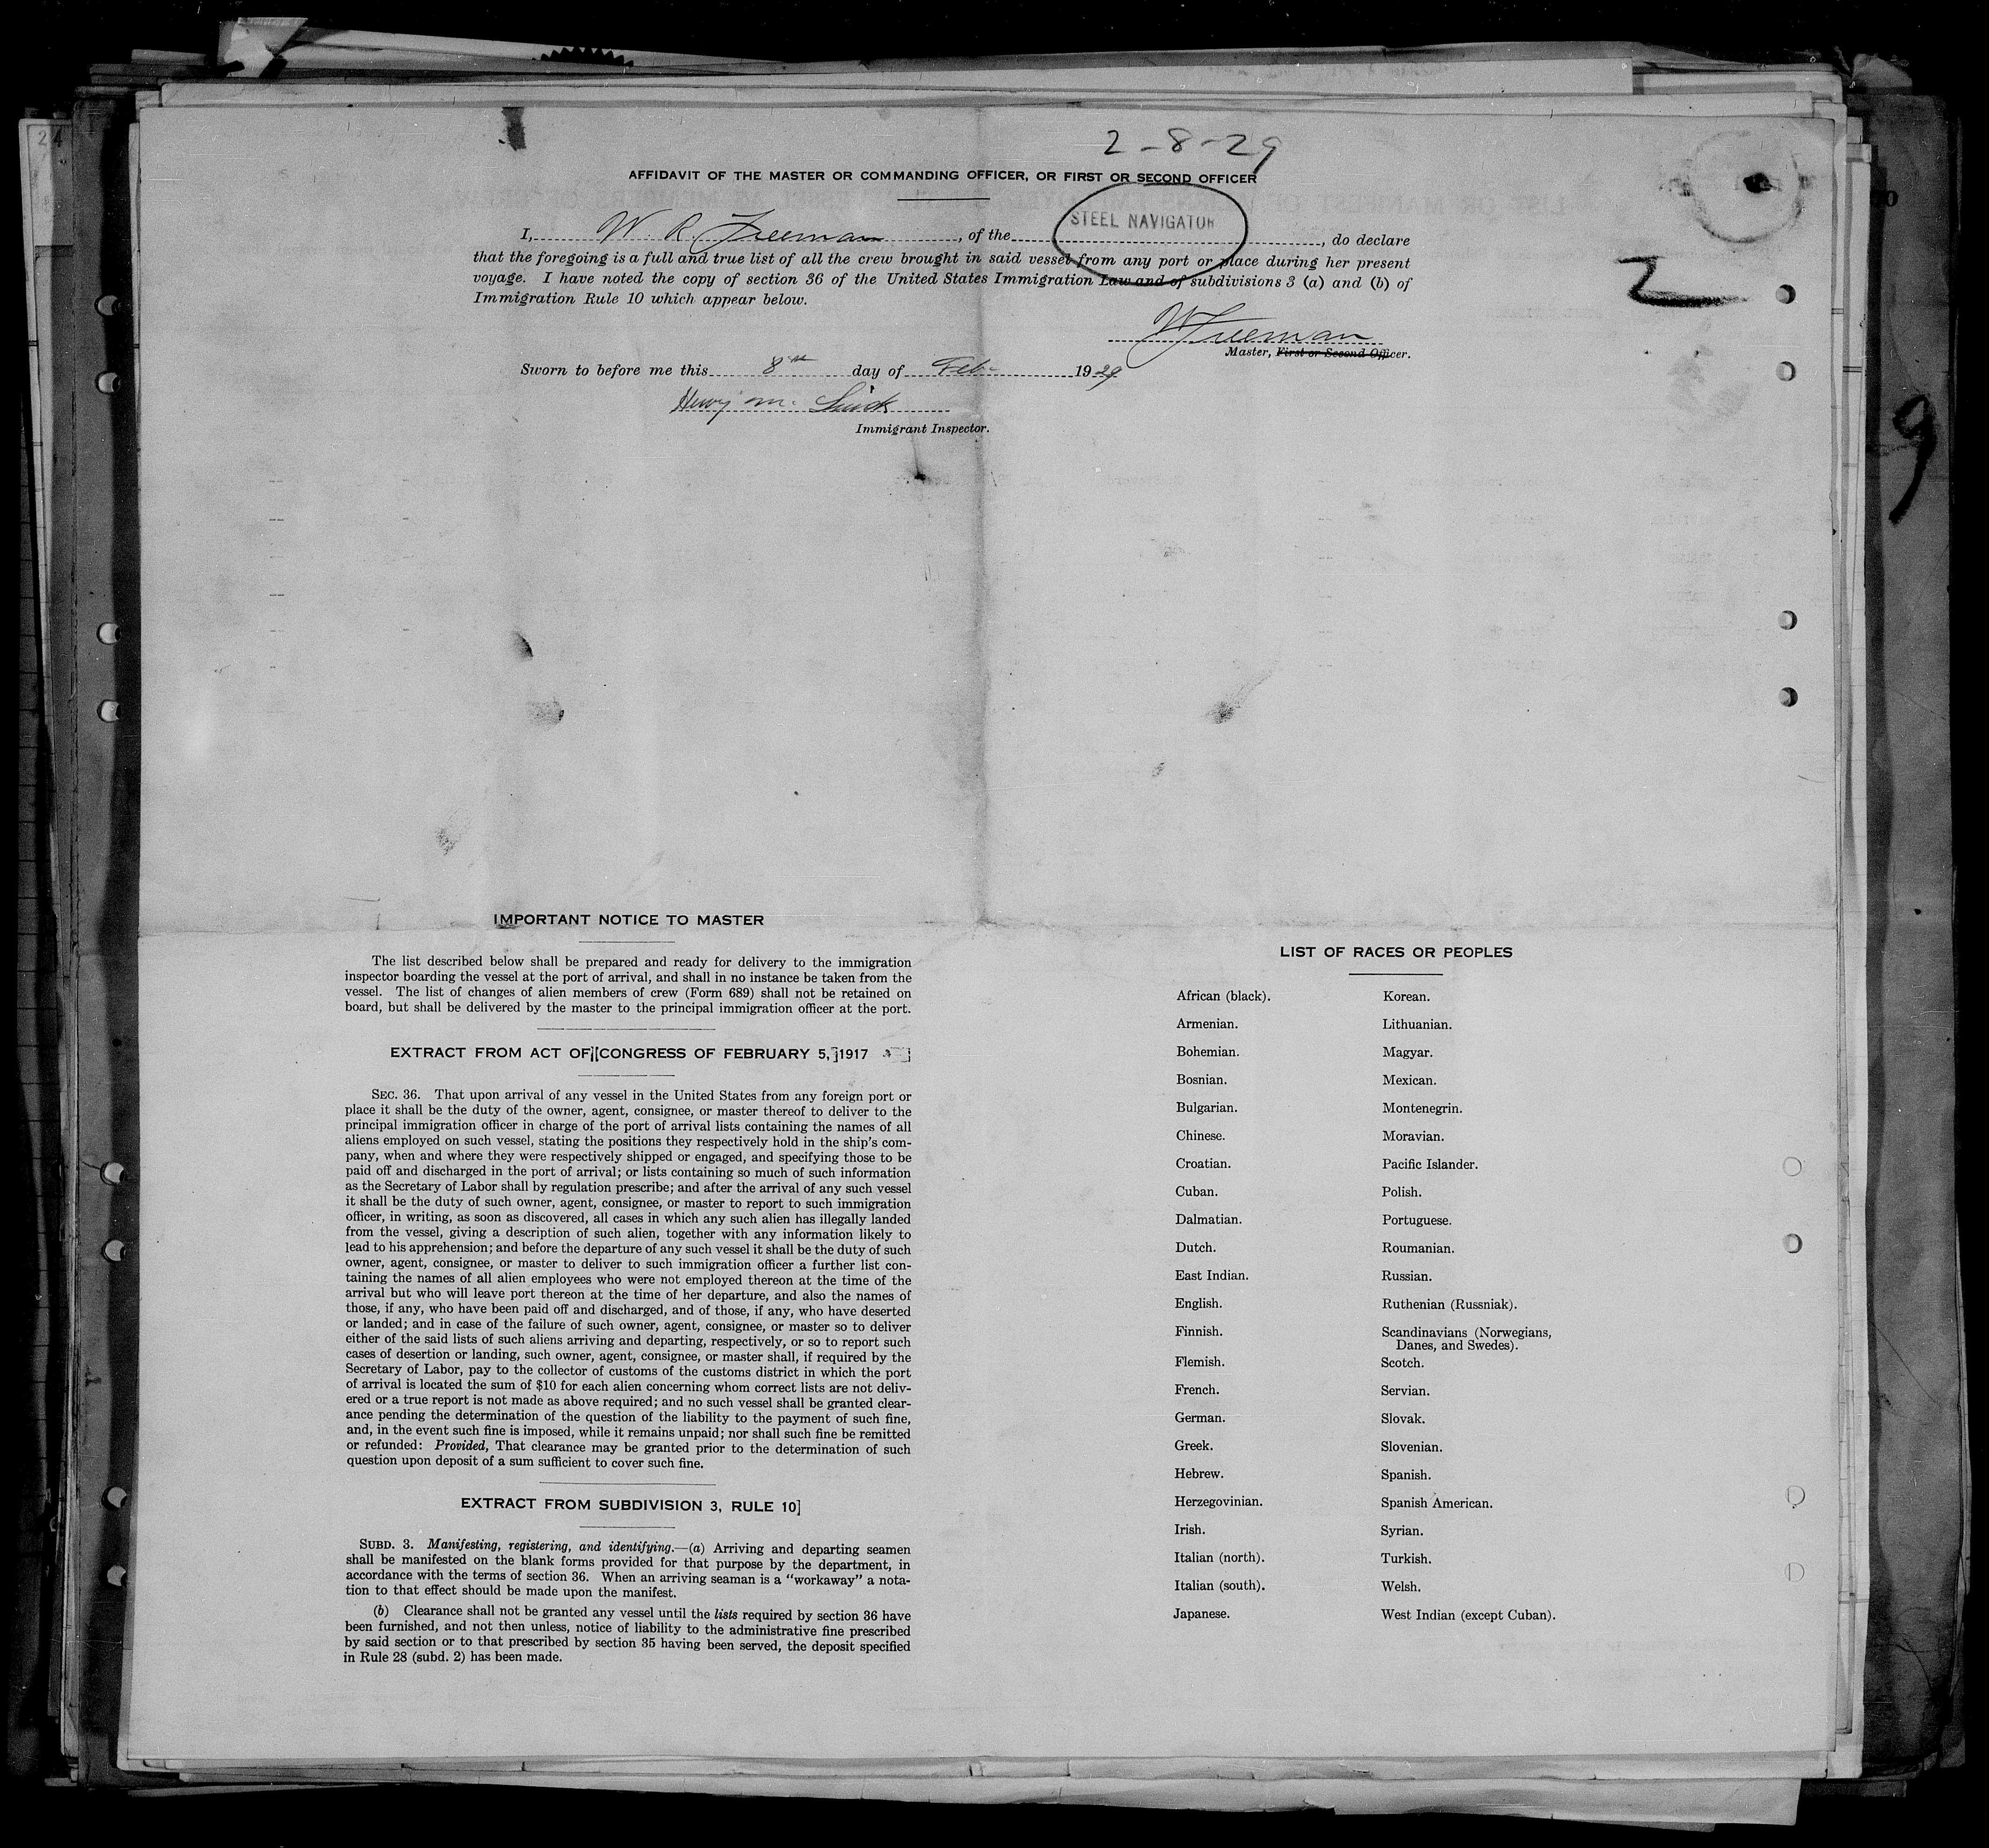 24
2-8-29
AFFIDAVIT OF THE MASTER OR COMMANDING OFFICER, OR FIRST OR SECOND OFFICER
I, W. R. Freeman, of the STEEL NAVIGATOR, do declare
that the foregoing is a full and true list of all the crew brought in said vessel from any port or place during her present
voyage. I have noted the copy of section 36 of the United States Immigration Law and of subdivisions 3 (a) and (b) of
Immigration Rule 10 which appear below.
2
W Freeman
Master, First or Second Officer.
Sworn to before me this 8th day of Feb. 1929
Henry M.
Immigrant Inspector.
9
IMPORTANT NOTICE TO MASTER
The list described below shall be prepared and ready for delivery to the immigration
inspector boarding the vessel at the port of arrival, and shall in no instance be taken from the
vessel. The list of changes of alien members of crew (Form 689) shall not be retained on
board, but shall be delivered by the master to the principal immigration officer at the port.
EXTRACT FROM ACT OF][CONGRESS OF FEBRUARY 5,]1917
SEC. 36. That upon arrival of any vessel in the United States from any foreign port or
place it shall be the duty of the owner, agent, consignee, or master thereof to deliver to the
principal immigration officer in charge of the port of arrival lists containing the names of all
aliens employed on such vessel, stating the positions they respectively hold in the ship's com-
pany, when and where they were respectively shipped or engaged, and specifying those to be
paid off and discharged in the port of arrival; or lists containing so much of such information
as the Secretary of Labor shall by regulation prescribe; and after the arrival of any such vessel
it shall be the duty of such owner, agent, consignee, or master to report to such immigration
officer, in writing, as soon as discovered, all cases in which any such alien has illegally landed
from the vessel, giving a description of such alien, together with any information likely to
lead to his apprehension; and before the departure of any such vessel it shall be the duty of such
owner, agent, consignee, or master to deliver to such immigration officer a further list con-
taining the names of all alien employees who were not employed thereon at the time of the
arrival but who will leave port thereon at the time of her departure, and also the names of
those, if any, who have been paid off and discharged, and of those, if any, who have deserted
or landed; and in case of the failure of such owner, agent, consignee, or master so to deliver
either of the said lists of such aliens arriving and departing, respectively, or so to report such
cases of desertion or landing, such owner, agent, consignee, or master shall, if required by the
Secretary of Labor, pay to the collector of customs of the customs district in which the port
of arrival is located the sum of $10 for each alien concerning whom correct lists are not deliv-
ered or a true report is not made as above required; and no such vessel shall be granted clear-
ance pending the determination of the question of the liability to the payment of such fine,
and, in the event such fine is imposed, while it remains unpaid; nor shall such fine be remitted
or refunded: Provided, That clearance may be granted prior to the determination of such
question upon deposit of a sum sufficient to cover such fine.
EXTRACT FROM SUBDIVISION 3, RULE 10]
SUBD. 3. Manifesting, registering, and identifying.—(a) Arriving and departing seamen
shall be manifested on the blank forms provided for that purpose by the department, in
accordance with the terms of section 36. When an arriving seaman is a "workaway" a nota-
tion to that effect should be made upon the manifest.
(b) Clearance shall not be granted any vessel until the lists required by section 36 have
been furnished, and not then unless, notice of liability to the administrative fine prescribed
by said section or to that prescribed by section 35 having been served, the deposit specified
in Rule 28 (subd. 2) has been made.
LIST OF RACES OR PEOPLES
African (black).
Armenian.
Bohemian.
Bosnian.
Bulgarian.
Chinese.
Croatian.
Cuban.
Dalmatian.
Dutch.
East Indian.
English.
Finnish.
Flemish.
French.
German.
Greek.
Hebrew.
Herzegovinian.
Irish.
Italian (north).
Italian (south).
Japanese.
Korean.
Lithuanian.
Magyar.
Mexican.
Montenegrin.
Moravian.
Pacific Islander.
Polish.
Portuguese.
Roumanian.
Russian.
Ruthenian (Russniak).
Scandinavians (Norwegians,
Danes, and Swedes).
Scotch.
Servian.
Slovak.
Slovenian.
Spanish.
Spanish American.
Syrian.
Turkish.
Welsh.
West Indian (except Cuban).